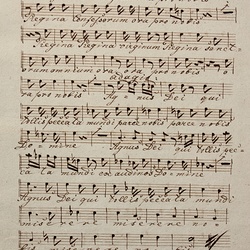 Regina Confessorum ora pro nobis
Regina Regina virginum Regina sanct
orum omnium ora ora pro nobis o
ra pro nobis Agnus Dei qui
tollis peccata mundi parce nobis parce nobis
Domine Agnus Dei qui tollis pec
ca ta mundi exaudi nos Domine
Agnus Dei qui tollis pecca ta mundi
miserere miserere no